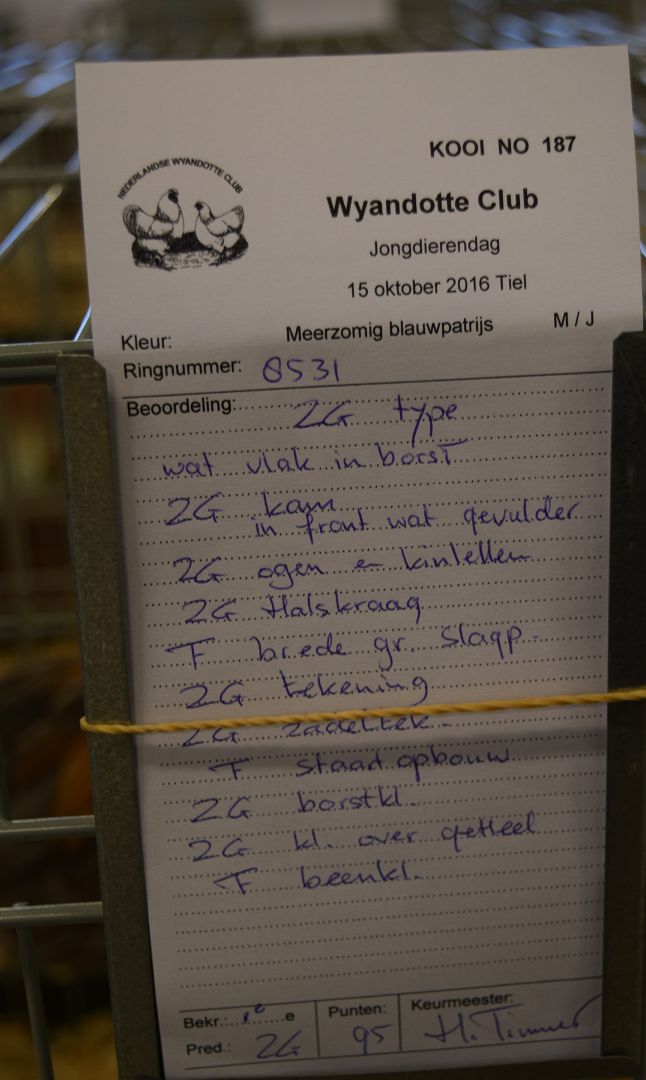 KOOI NO 187
NEDERLANDSE WYANDOTTE CLUB
Wyandotte Club
Jongdierendag
15 oktober 2016 Tiel
Kleur: Meerzomig blauwpatrijs M / J
Ringnummer: 8531
Beoordeling: ZG type
wat vlak in borst
ZG kam
in front wat gevulder
ZG ogen en kinlellen
ZG Halskraag
F brede gr. slagp.
ZG tekening
ZG zadeltek.
F staart opbouw
ZG borstkl.
ZG kl. over geheel
F beenkl.
Bekr.: 1e e Punten: Keurmeester:
Pred.: ZG 95 H. Timmer